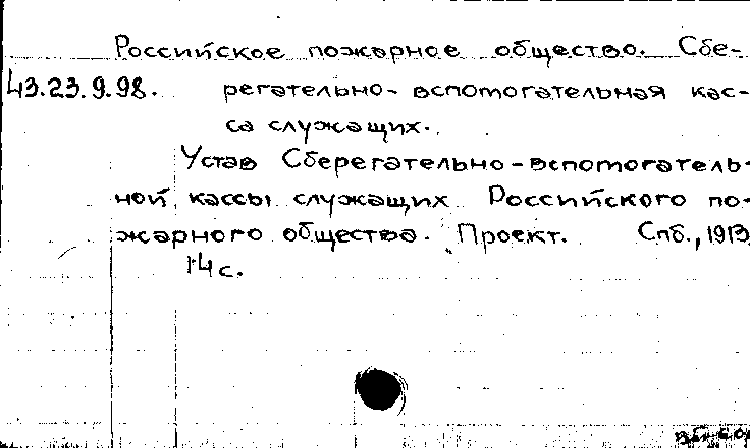 Российское пожарное общество. Сбе-
43.23.9.98. регательно-вспомогательная кас-
са служащих.
Устав Сберегательно-вспомогатель-
ной кассы служащих Российского по-
жарного общества. Проект. Спб., 1913
14 с.